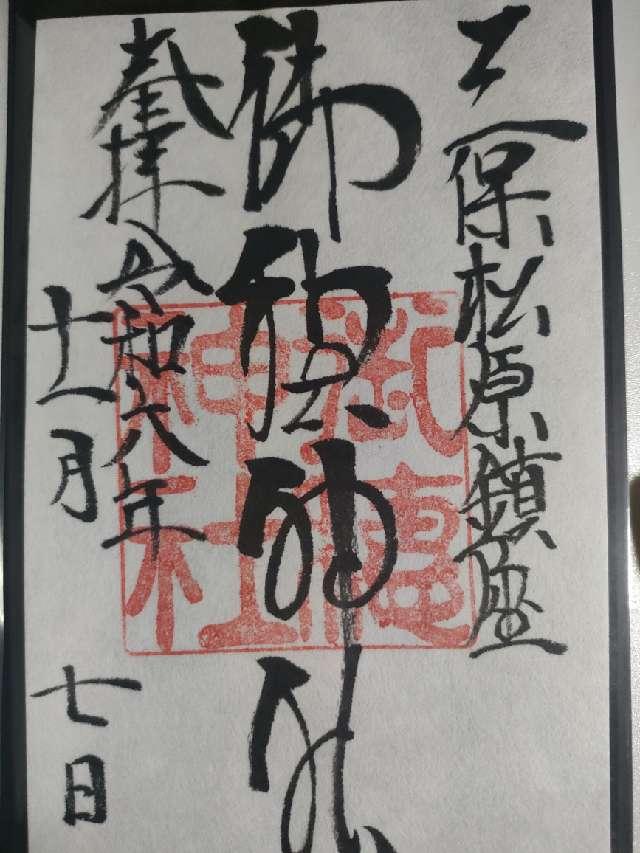 三保松原鎮座
御穂神社
奉拝
令和六年
十一月
七日
御穂神社